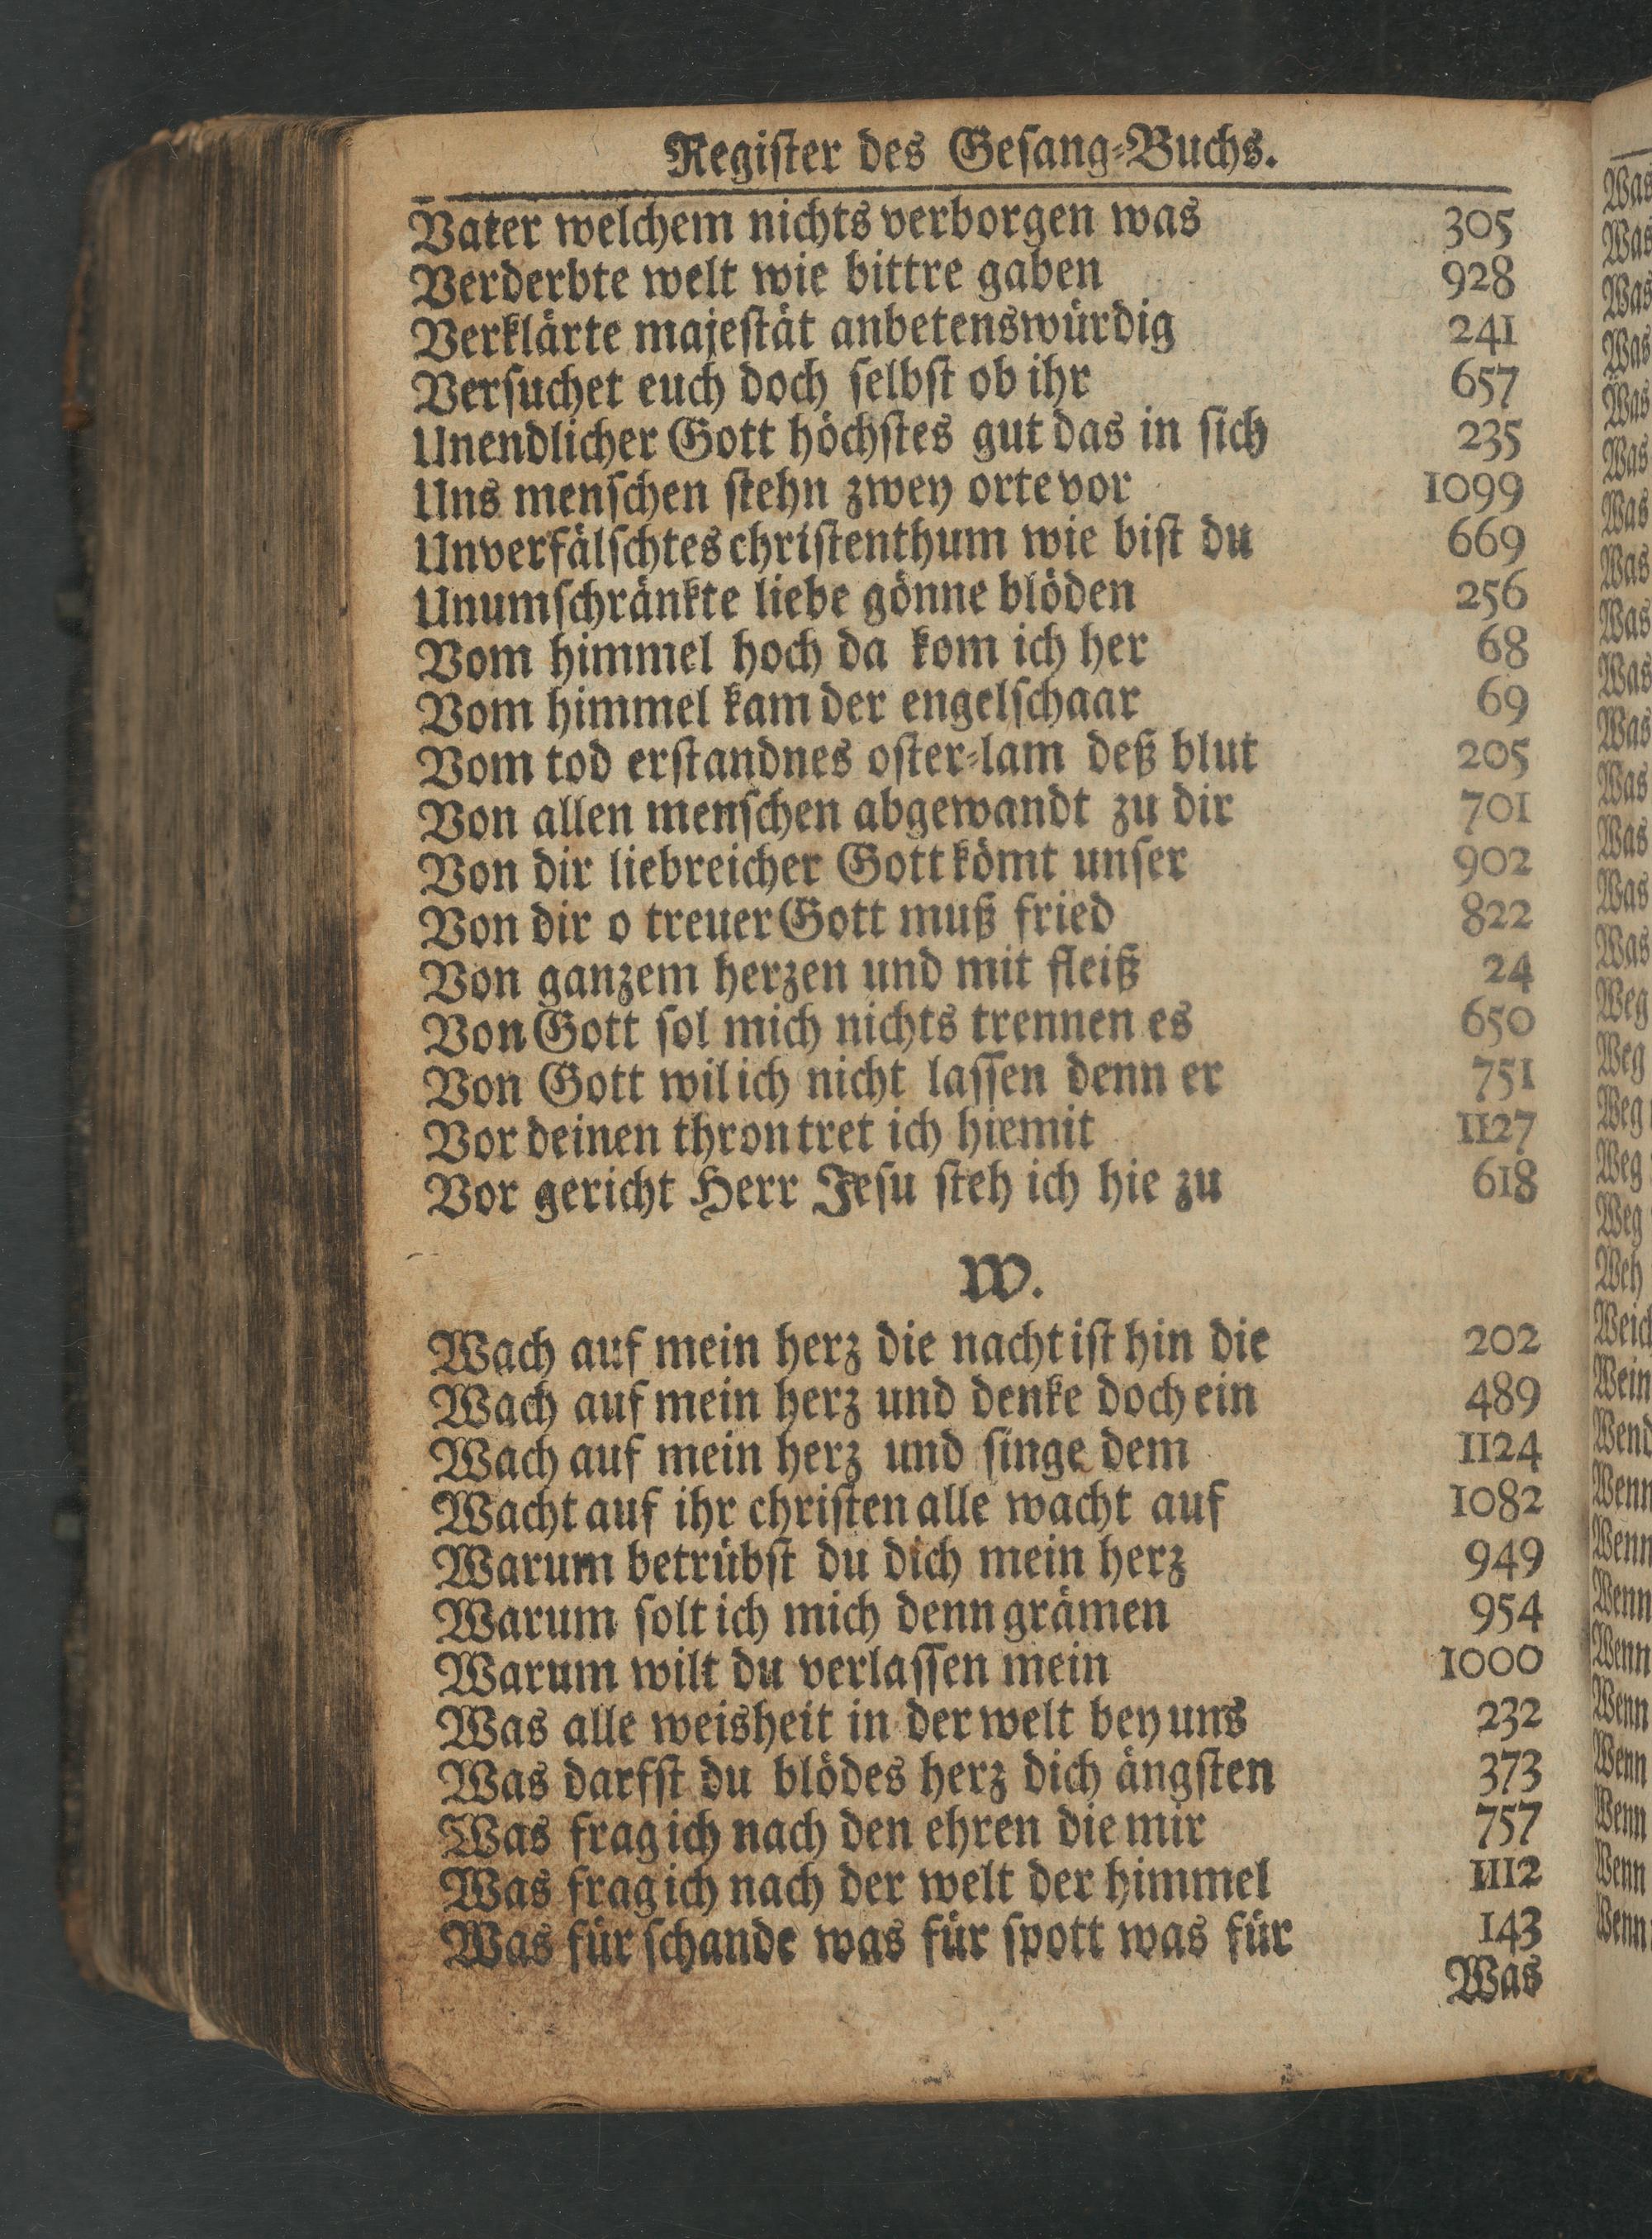 Regiſter des Geſang⸗Buchs.
Vater welchem nichts verborgen was 305
Verderbte welt wie bittre gaben 928
Verklärte majeſtät anbetenswürdig 241
Verſuchet euch doch ſelbſt ob ihr 657
Unendlicher Gott höchſtes gut das in ſich 235
Uns menſchen ſtehn zwey orte vor 1099
Unverfälſchtes chriſtenthum wie biſt du 669
Unumſchränkte liebe gönne blöden 256
Vom himmel hoch da kom ich her 68
Vom himmel kam der engelſchaar 69
Vom tod erſtandnes oſter⸗lam deß blut 205
Von allen menſchen abgewandt zu dir 701
Von dir liebreicher Gott kömt unſer 902
Von dir o treuer Gott muß fried 822
Von ganzem herzen und mit fleiß 24
Von Gott ſol mich nichts trennen es 650
Von Gott wil ich nicht laſſen denn er 751
Vor deinen thron tret ich hiemit 1127
Vor gericht Herr Jeſu ſteh ich hie zu 618
W.
Wach auf mein herz die nacht iſt hin die 202
Wach auf mein herz und denke doch ein 489
Wach auf mein herz und ſinge dem 1124
Wacht auf ihr chriſten alle wacht auf 1082
Warum betrübſt du dich mein herz 949
Warum ſolt ich mich denn grämen 954
Warum wilt du verlaſſen mein 1000
Was alle weisheit in der welt bey uns 232
Was darfſt du blödes herz dich ängſten 373
Was frag ich nach den ehren die mir 757
Was frag ich nach der welt der himmel 1112
Was für ſchande was für ſpott was für 143
Was
Was
Was
Was
Was
Was
Was
Was
Was
Was
Was
Was
Was
Was
Was
Was
Weg
Weg
Weg
Weg
Weg
Weh
Wenn
Wenn
Wenn
Wenn
Wenn
Wenn
Wenn
Wenn
Wenn